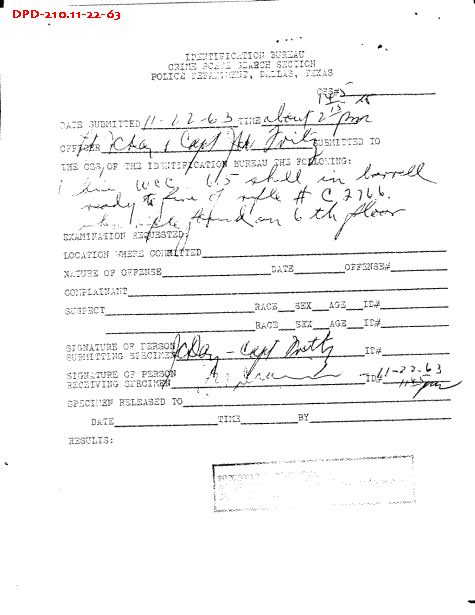 DPD-210.11-22-63
IDENTIFICATION BUREAU
CRIME SCENE SEARCH SECTION
POLICE DEPARTMENT, DALLAS, TEXAS
CSS#
DATE SUBMITTED 11-22-63 TIME about 2 pm
OFFICER Day & Capt Fritz SUBMITTED TO
THE CSS OF THE IDENTIFICATION BUREAU THE FOLLOWING:
1 live 6.5 shell in barrell
ready to fire of rifle # C 2766.
when found on 6th floor
EXAMINATION REQUESTED:
LOCATION WHERE COMMITTED
NATURE OF OFFENSE DATE OFFENSE#
COMPLAINANT
SUSPECT RACE SEX AGE ID#
RACE SEX AGE ID#
SIGNATURE OF PERSON
SUBMITTING SPECIMEN Day - Capt Fritz ID#
SIGNATURE OF PERSON
RECEIVING SPECIMEN ID# 11-22-63
SPECIMEN RELEASED TO
DATE TIME BY
RESULTS: